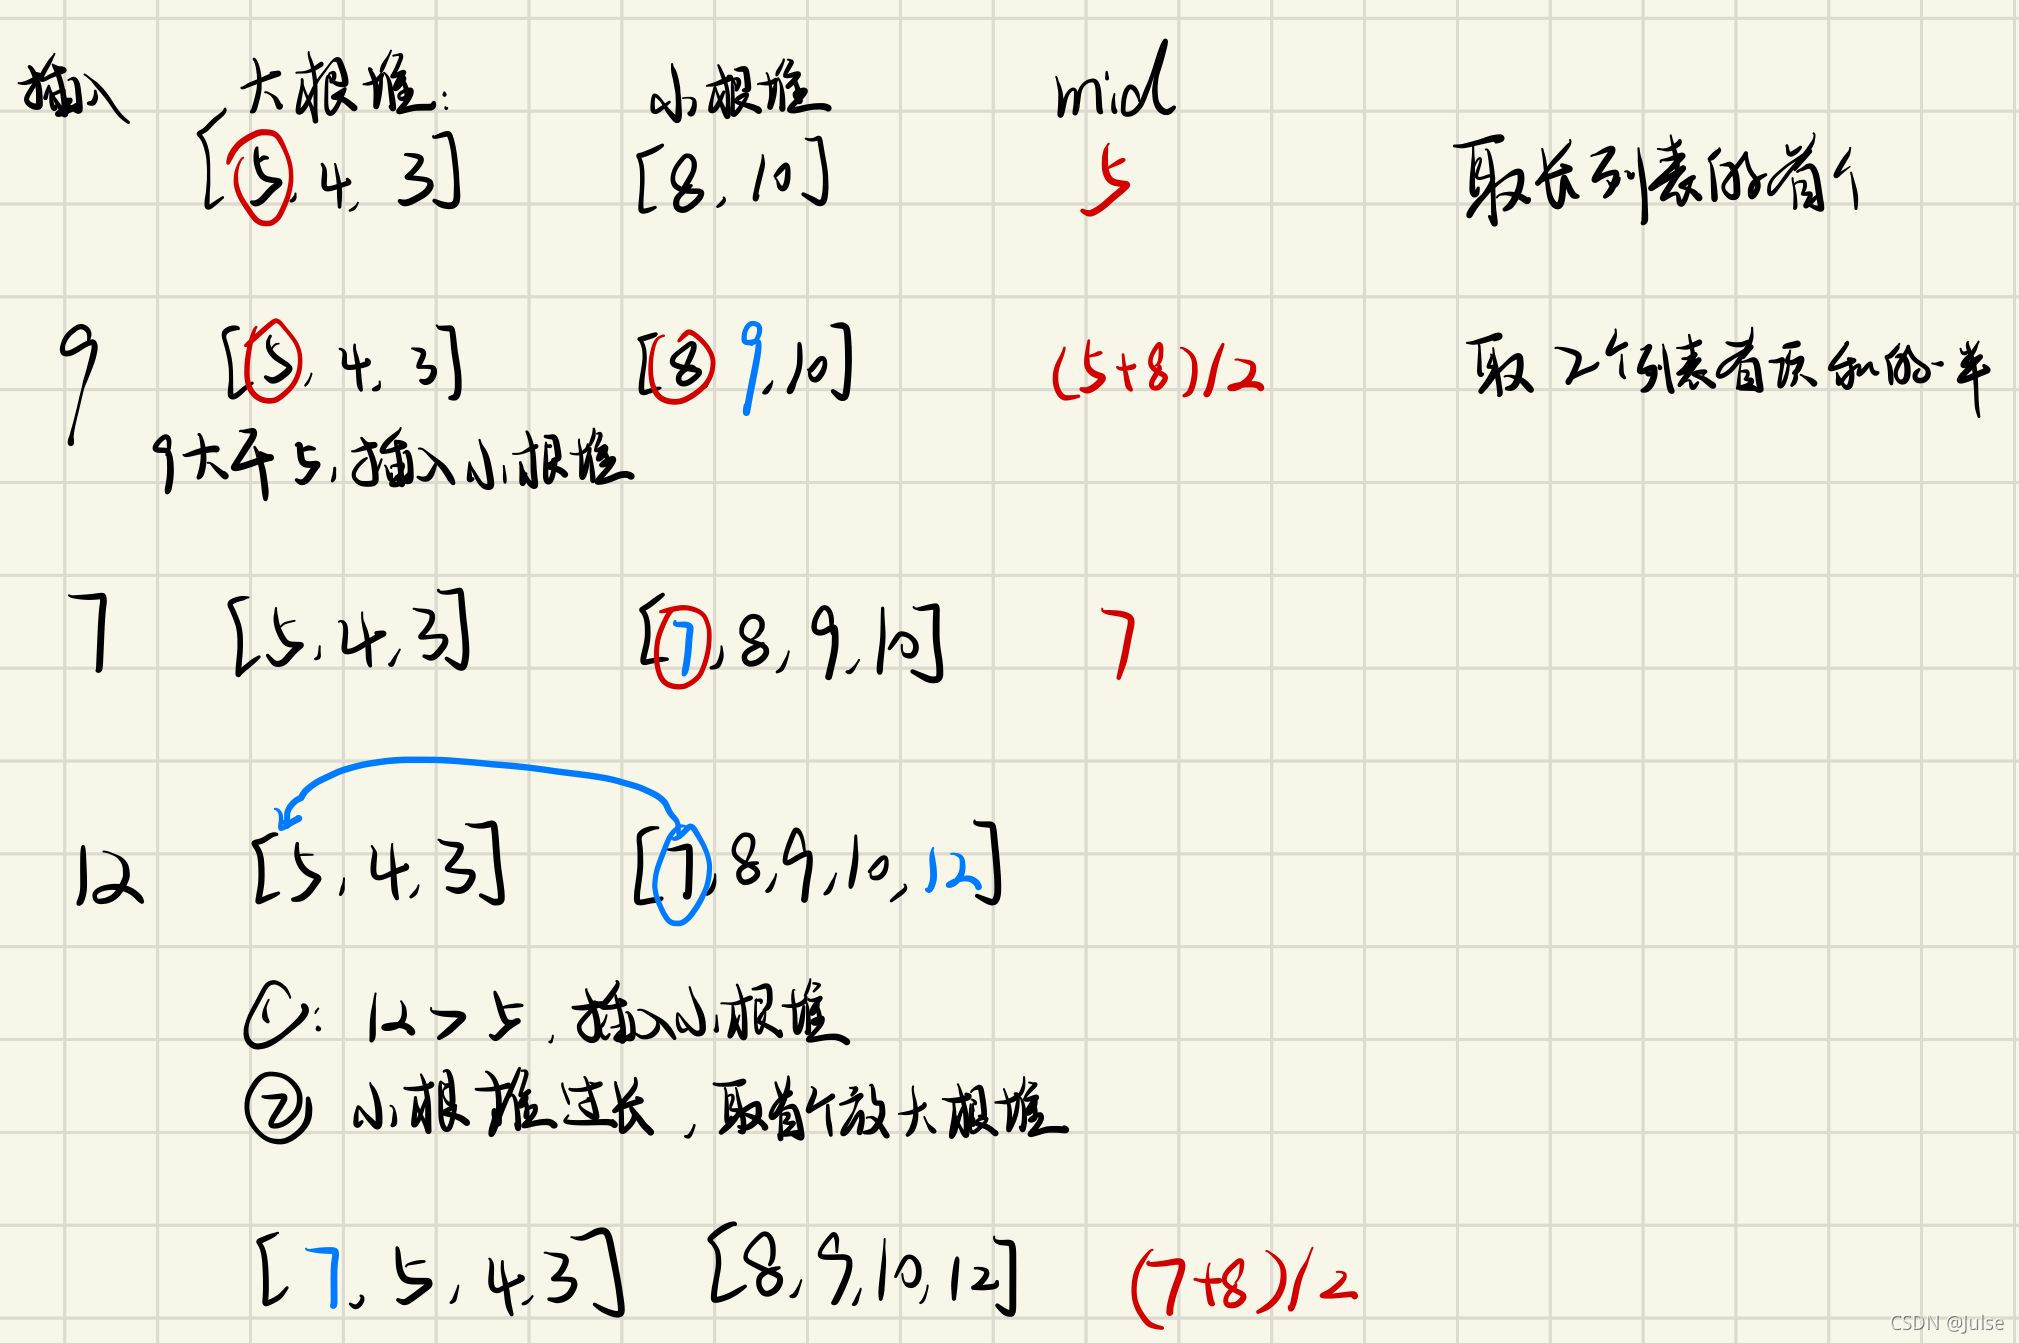 插入 大根堆: 小根堆 mid
[5, 4, 3] [8, 10] 5 取长列表的首个
9 [5, 4, 3] [8 9, 10] (5+8)/2 取2个列表首项和的一半
9大于5,插入小根堆
7 [5, 4, 3] [7, 8, 9, 10] 7
12 [5, 4, 3] [7, 8, 9, 10, 12]
①: 12 > 5, 插入小根堆
② 小根堆过长, 取首个放大根堆
[7, 5, 4, 3] [8, 9, 10, 12] (7+8)/2
CSDN @Julse